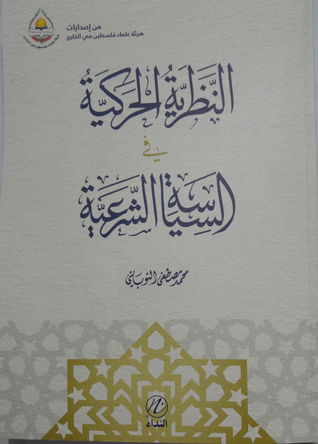 من إصدارات
هيئة علماء فلسطين في الخارج
النَّظَرِيَّةُ الحَرَكِيَّةُ
فِي
السِّيَاسَةِ الشَّرْعِيَّةِ
محمد مصطفى النوباني
النداء